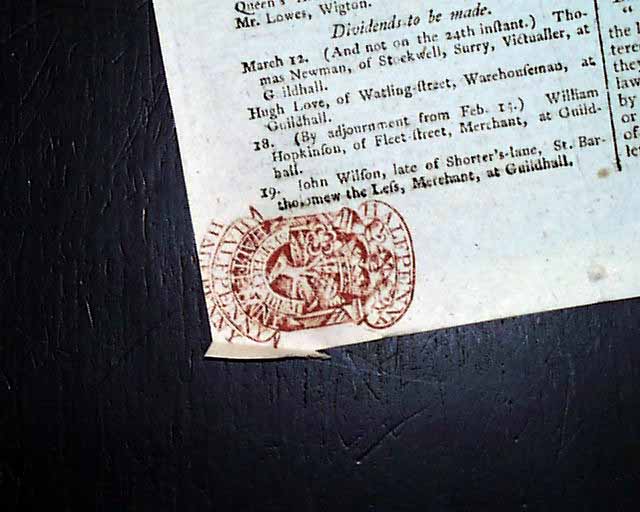 Queen's
Mr. Lowes, Wigton.
Dividends to be made.
March 12. (And not on the 24th inſtant.) Tho-
mas Newman, of Stockwell, Surry, Victualler, at
Guildhall.
Hugh Love, of Watling-ſtreet, Warehouſeman, at
Guildhall.
18. (By adjournment from Feb. 15.) William
Hopkinſon, of Fleet-ſtreet, Merchant, at Guild-
hall.
19. John Wilſon, late of Shorter's-lane, St. Bar-
tholomew the Leſs, Merchant, at Guildhall.
HALFPENNY
the
tere
they
law
by
or
of